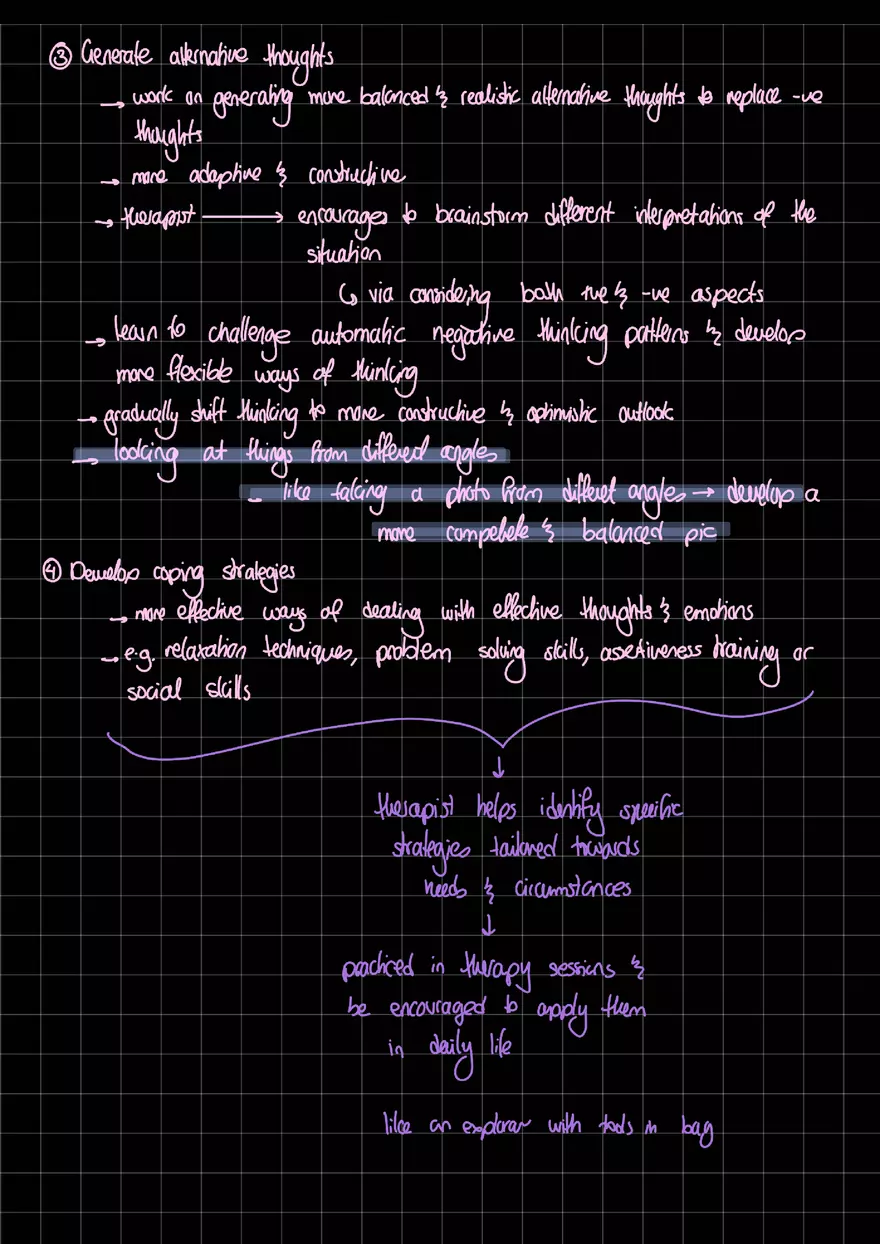 ③ Generate alternative thoughts
→ work on generating more balanced & realistic alternative thoughts to replace -ve
thoughts
→ more adaptive & constructive
→ therapist → encourages to brainstorm different interpretations of the
situation
↳ via considering both +ve & -ve aspects
→ learn to challenge automatic negative thinking patterns & develop
more flexible ways of thinking
→ gradually shift thinking to more constructive & optimistic outlook
→ looking at things from differed angles
- like taking a photo from differet angles → develop a
more compelete & balanced pic
④ Develop coping strategies
→ more effective ways of dealing with effective thoughts & emotions
→ e.g. relaxation techniques, problem solving skills, assertiveness training or
social skills
↓
therapist helps identify specific
strategies tailored towards
needs & circumstances
↓
practiced in therapy sessions &
be encouraged to apply them
in daily life
like an explorar with tools in bag